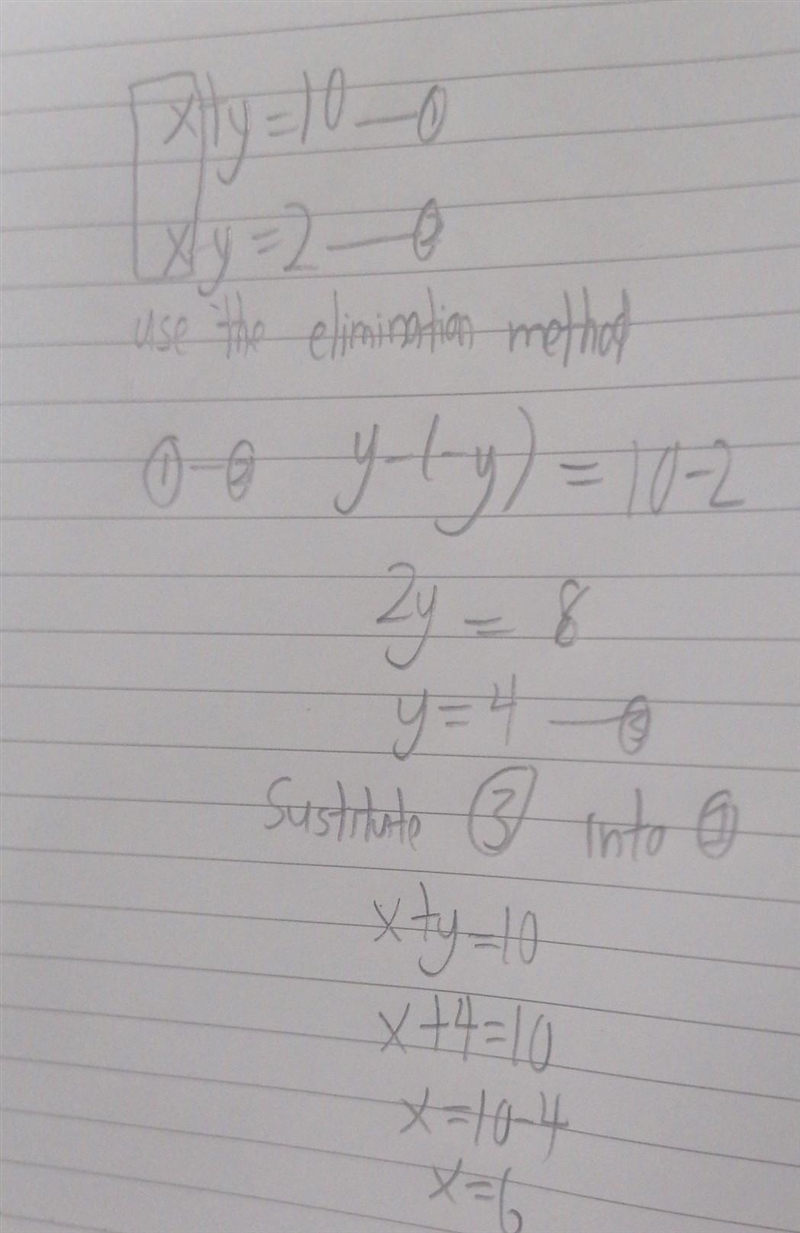 x+y=10—①
x-y=2—②
use the elimination method
①-② y-(-y)=10-2
2y=8
y=4—③
Sustitute ③ into ①
x+y=10
x+4=10
x=10-4
x=6